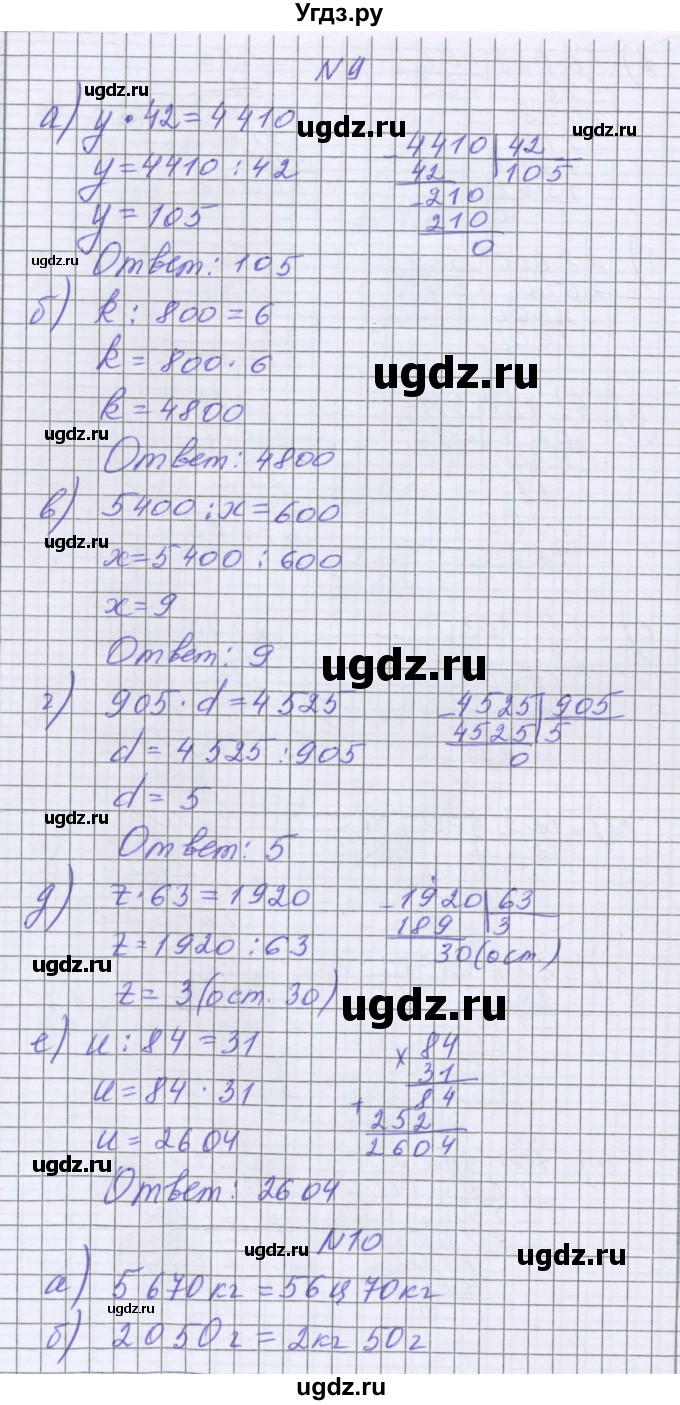 Угдз.ру
N 9
ugdz.ru
а) y • 42 = 4410
ugdz.ru
ugdz.ru
y = 4410 : 42
y = 105
4410 | 42
42 | 105
- 210
210
0
ugdz.ru
Ответ: 105
б) k : 800 = 6
k = 800 · 6
ugdz.ru
k = 4800
ugdz.ru
Ответ: 4800
в) 5400 : x = 600
ugdz.ru
x = 5400 : 600
x = 9
Ответ: 9
ugdz.ru
г) 905 · d = 4525
d = 4525 : 905
d = 5
- 4525 | 905
4525 | 5
0
ugdz.ru
Ответ: 5
д) z · 63 = 1920
z = 1920 : 63
- 1920 | 63
189 | 3
30 (ост)
ugdz.ru
z = 3 (ост. 30)
ugdz.ru
е) u : 84 = 31
u = 84 · 31
u = 2604
x 84
31
+ 84
252
2604
ugdz.ru
Ответ: 2604
N 10
ugdz.ru
ugdz.ru
а) 5670 кг = 56 ц 70 кг
ugdz.ru
б) 2050 г = 2 кг 50 г
ugdz.ru
ugdz.ru